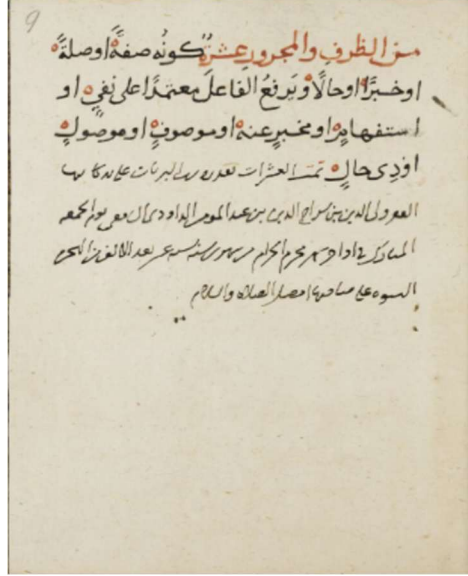 9
من الظرف والمجرور عشرة كونُه صفةً اوصلةً
اوخبرًا اوحالًا وَيرفعُ الفاعلَ معتمدًا على نفيٍ او
استفهامٍ او مخبرٍ عنه او موصوفٍ او موصولٍ
اوذى حالٍ تمت العشرات على يد كاتبها
ولى الدين بن سراج الدين بن عبد المومن فى يوم الجمعه
المبارك فى اواخر شهر محرم الحرام من شهور سنه عشر بعد الالف من الهجره
النبويه على صاحبها افضل الصلاه والسلام